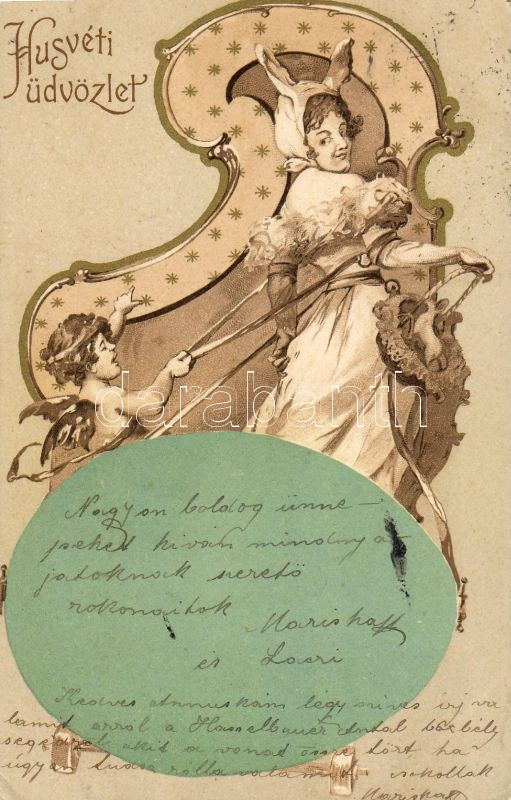 Husvéti
üdvözlet
darabanth
Nagyon boldog ünne-
peket kíván mindnyá
jatoknak szerető
rokonaitok
Mariska
és Laczi
Kedves Annuskám légy szives irj va
lamit arról a Hasselbauer Antal
akit a vonat össze tört ha
ugyan tudsz rolla valamit. csokollak
Mariska